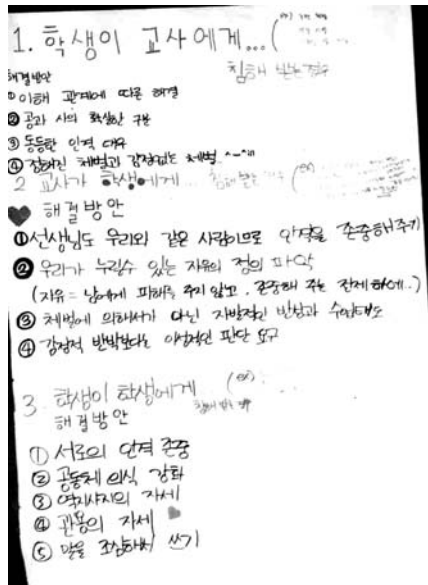 1. 학생이 교사에게...(
침해 받는 경우
해결방안
① 이해 관계에 따른 해결
② 공과 사의 확실한 구분
③ 동등한 인격 대우
④ 정해진 체벌과 감정없는 체벌 ^-^
2 교사가 학생에게... 침해 받는 경우 (ex)
♥ 해결방안
① 선생님도 우리와 같은 사람이므로 인격을 존중해주기
② 우리가 누릴수 있는 자유의 정의 파악
(자유 = 남에게 피해를 주지 않고, 존중해 주는 전제 하에..)
③ 체벌에 의해서가 아닌 자발적인 반성과 수업태도
④ 감정적 반박보다는 이성적인 판단 요구
3. 학생이 학생에게 (ex)
침해 받는 경우
해결방안
① 서로의 인격 존중
② 공동체 의식 강화
③ 역지사지의 자세
④ 관용의 자세 ♥
⑤ 말을 조심해서 쓰기